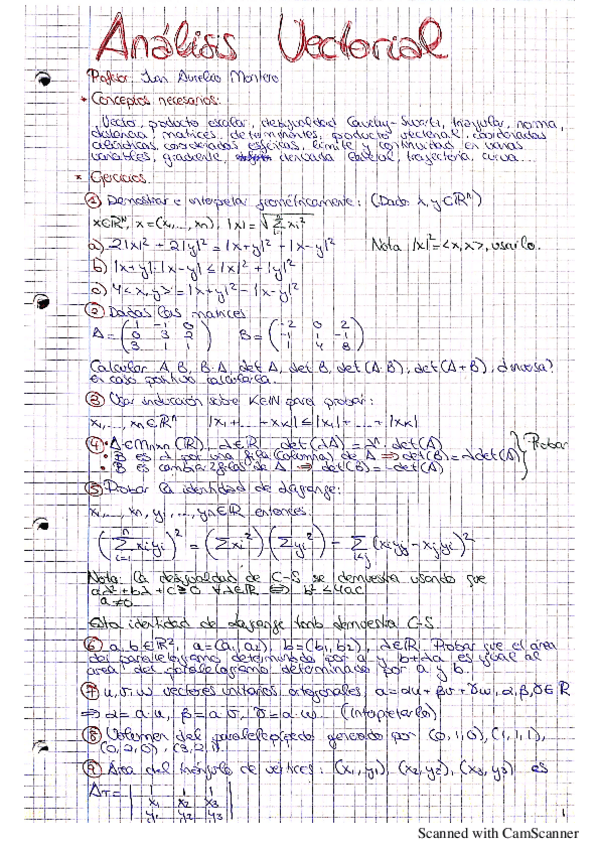 Análisis Vectorial
Profesor: Juan Aurelio Montero
* Conceptos necesarios:
Vector, producto escalar, desigualdad Cauchy-Swartz, triangular, norma,
distancia, matrices, determinantes, producto vectorial, coordenadas
cilíndricas, coordenadas esféricas, límite y continuidad en varias
variables, gradiente, derivada, trayectoria, curva...
* Ejercicios.
① Demostrar e interpretar geométricamente: (Dado x, y ∈ ℝⁿ)
x∈ℝⁿ, x=(x₁,...,xₙ), |x| = √(∑ xᵢ²)
a) 2|x|² + 2|y|² = |x+y|² + |x-y|² Nota: |x|² = <x,x>, usarlo.
b) |x+y|·|x-y| ≤ |x|² + |y|²
c) 4<x,y> = |x+y|² - |x-y|²
② Dadas las matrices
A = (1 -1 0 / 0 3 2 / 3 1 1) B = (-2 0 2 / -1 1 -1 / 1 4 8)
Calcular A·B, B·A, det A, det B, det(A·B), det(A+B), ¿inversa?
En caso positivo calcularla.
③ Usar inducción sobre K∈ℕ para probar:
x₁,..., ∈ℝⁿ |x₁+...+xₖ| ≤ |x₁|+...+|xₖ|
④ • A∈Mₙₓₙ(ℝ), λ∈ℝ det(λA) = λⁿ·det(A)
• B es λ por una fila (columna) de A ⇒ det(B) = λdet(A) } Probar
• B es cambiar 2 filas de A ⇒ det(B) = -det(A)
⑤ Probar la identidad de Lagrange:
x₁,..., xₙ, y₁,..., yₙ∈ℝ entonces:
(∑ xᵢyᵢ)² = (∑xᵢ²)(∑yᵢ²) - ∑(xᵢyⱼ - xⱼyᵢ)²
Nota: La desigualdad de C-S se demuestra usando que
aλ² + bλ + c ≥ 0 ∀λ∈ℝ ⟺ b² ≤ 4ac
a≠0
Esta identidad de Lagrange tamb demuestra C-S.
⑥ a, b ∈ℝ², a=(a₁,a₂), b=(b₁,b₂), λ∈ℝ. Probar que el área
del paralelogramo determinado por a y b+λa es igual al
área del paralelogramo determinado por a y b.
⑦ u, v, w vectores unitarios ortogonales, a = αu + βv + γw, α,β,γ∈ℝ
⇒ α = a·u, β = a·v, γ = a·w (Interpretarlo)
⑧ Volumen del paralelepípedo generado por (0,1,0), (1,1,1),
(0,2,0), (3,2,1).
⑨ Área del triángulo de vértices: (x₁,y₁), (x₂,y₂), (x₃,y₃) es
A_T = | 1 1 1 |
| x₁ x₂ x₃ |
| y₁ y₂ y₃ |
1
Scanned with CamScanner